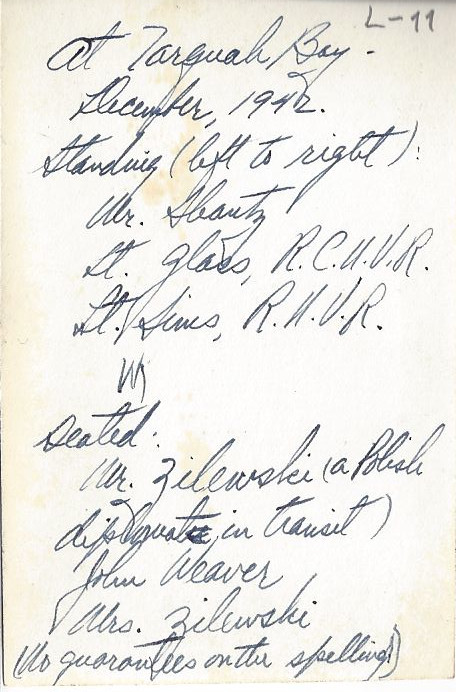 L-11
At Tarquah Bay.
December, 1942.
Standing (left to right):
Mr. Shantz
Lt. Glass, R.C.N.V.R.
Lt. Sims, R.N.V.R.
Seated:
Mr. Zilewski (a Polish
diplomat in transit)
John Weaver
Mrs. Zilewski
(No guarantees on the spelling!)